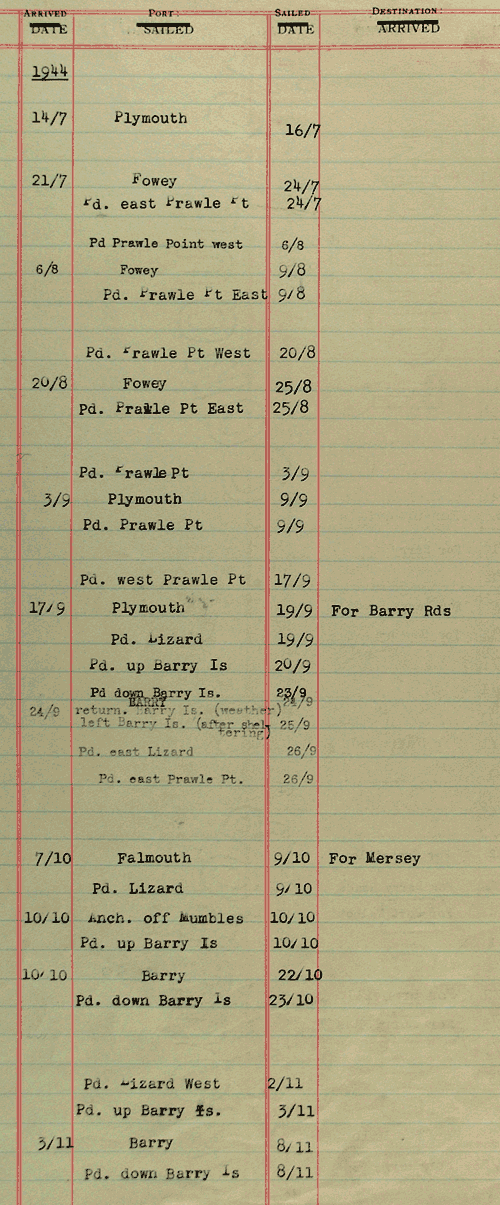 ARRIVED PORT: SAILED DESTINATION:
DATE SAILED DATE ARRIVED
1944
14/7 Plymouth 16/7
21/7 Fowey 24/7
Pd. east Prawle Pt 24/7
Pd Prawle Point west 6/8
6/8 Fowey 9/8
Pd. Prawle Pt East 9/8
Pd. Prawle Pt West 20/8
20/8 Fowey 25/8
Pd. Prawle Pt East 25/8
Pd. Prawle Pt 3/9
3/9 Plymouth 9/9
Pd. Prawle Pt 9/9
Pd. west Prawle Pt 17/9
17/9 Plymouth 19/9 For Barry Rds
Pd. Lizard 19/9
Pd. up Barry Is 20/9
Pd down Barry Is. 23/9
BARRY 24/9
24/9 return. Barry Is. (weather)
left Barry Is. (after shel- 25/9
tering)
Pd. east Lizard 26/9
Pd. east Prawle Pt. 26/9
7/10 Falmouth 9/10 For Mersey
Pd. Lizard 9/10
10/10 Anch. off Mumbles 10/10
Pd. up Barry Is 10/10
10/10 Barry 22/10
Pd. down Barry Is 23/10
Pd. Lizard West 2/11
Pd. up Barry Is. 3/11
3/11 Barry 8/11
Pd. down Barry Is 8/11